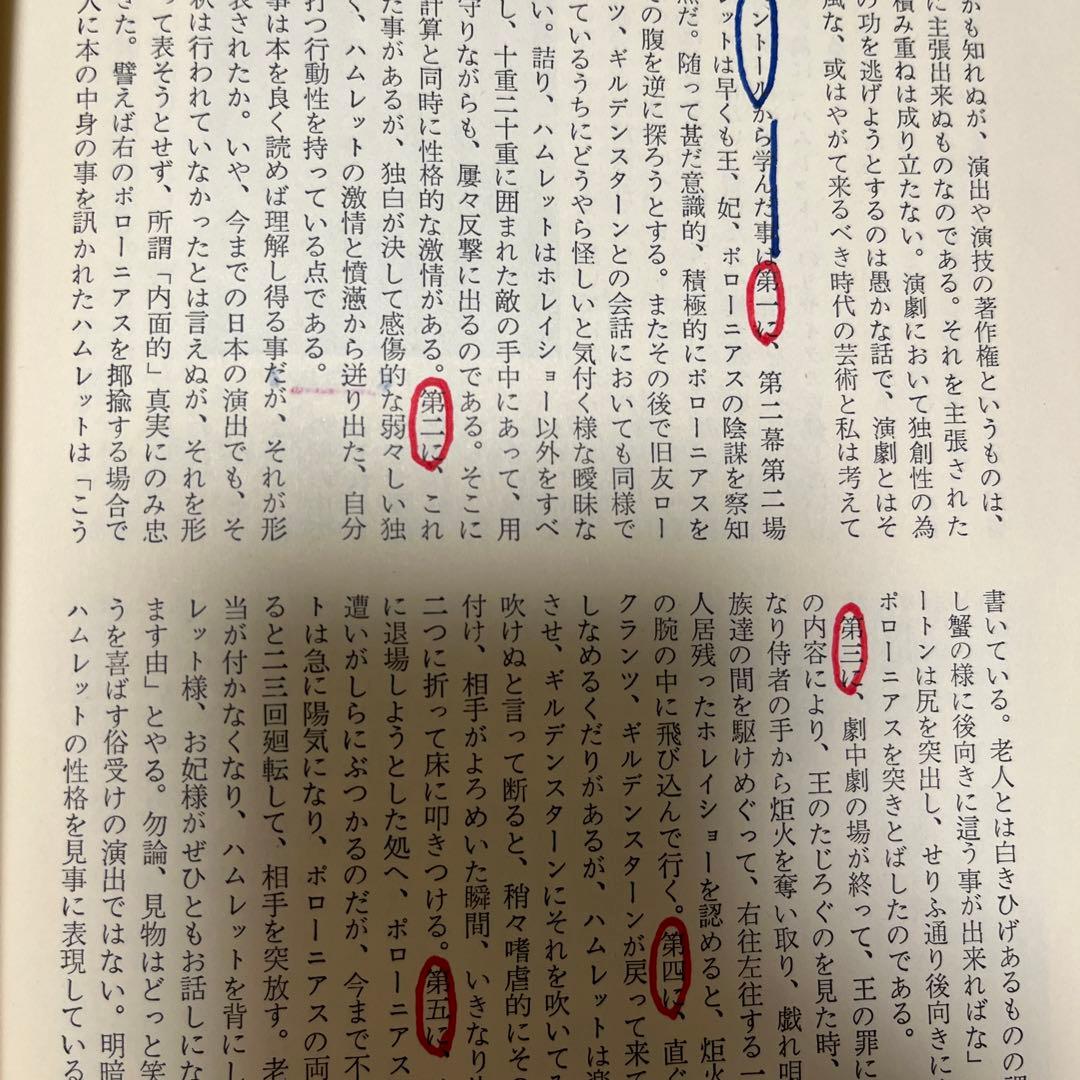 かも知れぬが、演出や演技の著作権というものは、
に主張出来ぬものなのである。それを主張された
積み重ねは成り立たない。演劇において独創性の為
の功を逃げようとするのは愚かな話で、演劇とはそ
風な、或はやがて来るべき時代の芸術と私は考えて
ントールから学んだ事は第一に、第二幕第二場
レットは早くも王、妃、ポローニアスの陰謀を察知
点だ。随って甚だ意識的、積極的にポローニアスを
その腹を逆に探ろうとする。またその後で旧友ロー
ツ、ギルデンスターンとの会話においても同様で
ているうちにどうやら怪しいと気付く様な曖昧な
い。詰り、ハムレットはホレイショー以外をすべ
し、十重二十重に囲まれた敵の手中にあって、用
守りながらも、屢々反撃に出るのである。そこに
計算と同時に性格的な激情がある。第二に、これ
た事があるが、独白が決して感傷的な弱々しい独
く、ハムレットの激情と憤懣から迸り出た、自分
打つ行動性を持っている点である。
事は本を良く読めば理解し得る事だが、それが形
表されたか。いや、今までの日本の演出でも、そ
釈は行われていなかったとは言えぬが、それを形
って表そうとせず、所謂「内面的」真実にのみ忠
た。譬えば右のポローニアスを揶揄する場合で
人に本の中身の事を訊かれたハムレットは「こう
書いている。老人とは白きひげあるものの謂
し蟹の様に後向きに這う事が出来ればな」
ートンは尻を突出し、せりふ通り後向きに
ポローニアスを突きとばしたのである。
第三に、劇中劇の場が終って、王の罪に
の内容により、王のたじろぐのを見た時、
なり侍者の手から炬火を奪い取り、戯れ唄
族達の間を駆けめぐって、右往左往する一
人居残ったホレイショーを認めると、炬火
の腕の中に飛び込んで行く。第四に、直ぐ
クランツ、ギルデンスターンが戻って来て
しなめるくだりがあるが、ハムレットは楽
させ、ギルデンスターンにそれを吹いてみ
吹けぬと言って断ると、稍々嗜虐的にその
付け、相手がよろめいた瞬間、いきなり
二つに折って床に叩きつける。第五に、
に退場しようとした処へ、ポローニアス
遭いがしらにぶつかるのだが、今まで不
トは急に陽気になり、ポローニアスの両
ると二三回廻転して、相手を突放す。老
当が付かなくなり、ハムレットを背にし
レット様、お妃様がぜひともお話しにな
ます由」とやる。勿論、見物はどっと笑
うを喜ばす俗受けの演出ではない。明暗
ハムレットの性格を見事に表現している